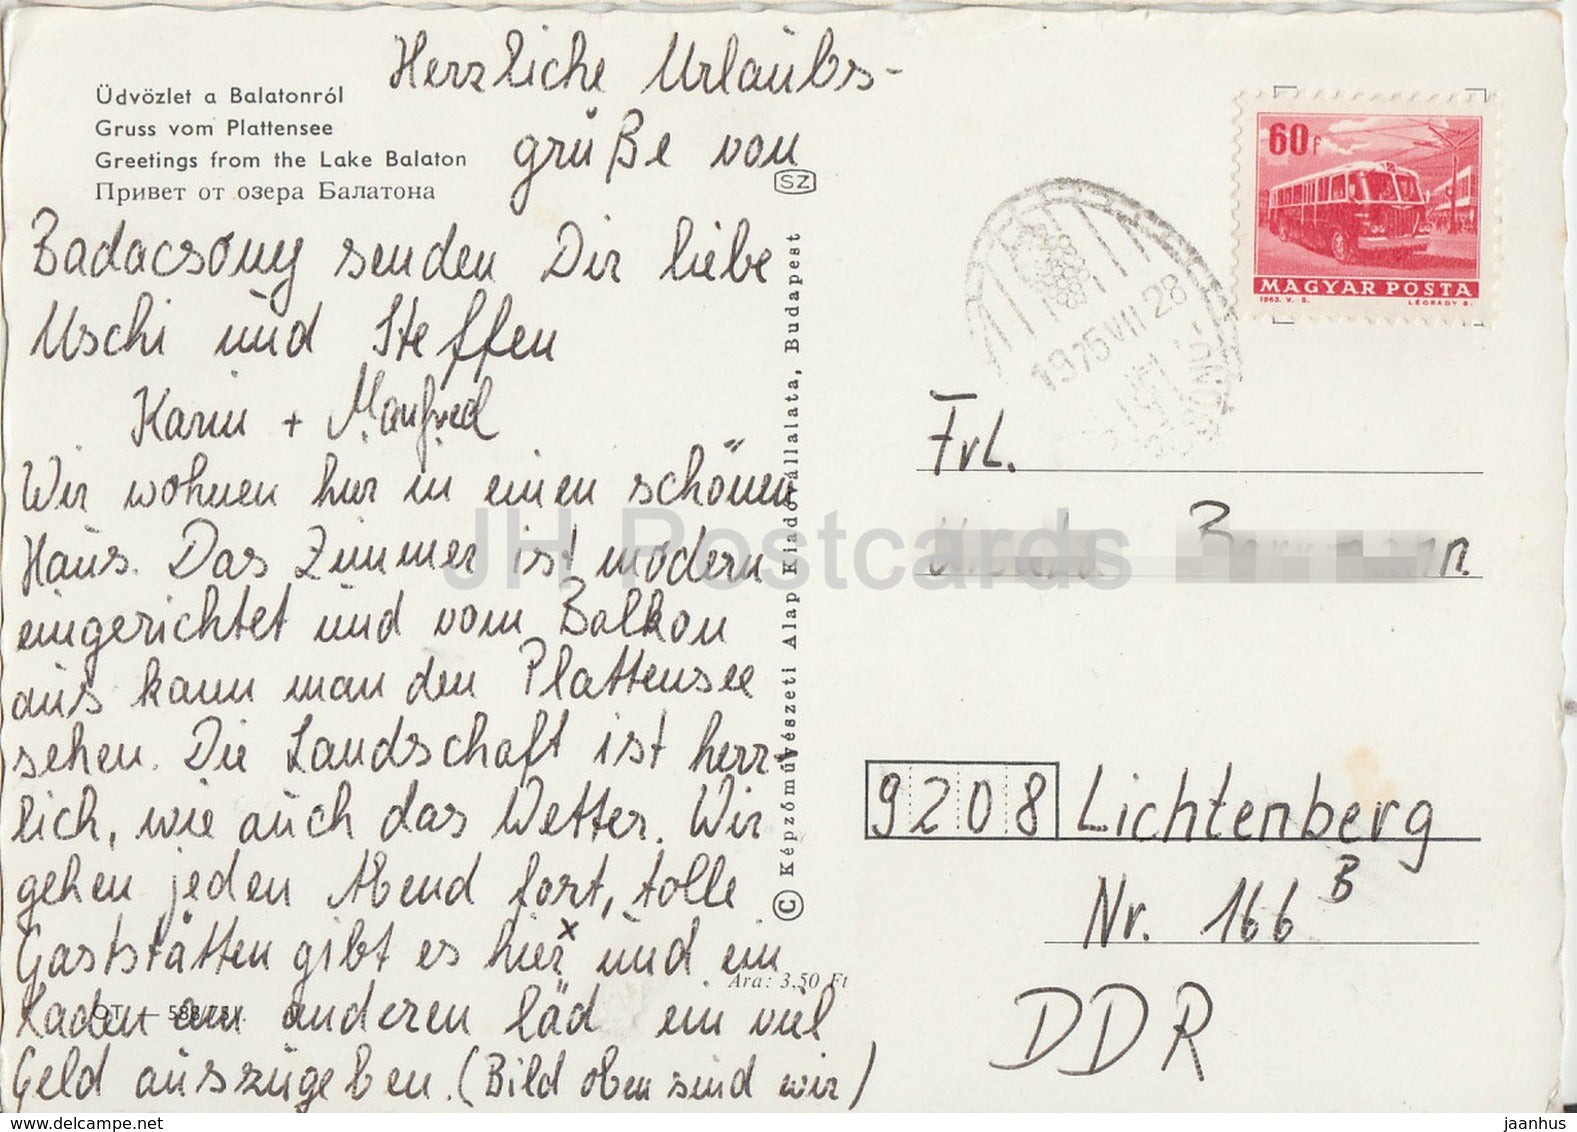 Üdvözlet a Balatonról
Gruss vom Plattensee
Greetings from the Lake Balaton
Привет от озера Балатона
Herzliche Urlaubs-
grüße von
SZ
Badacsony senden Dir liebe
Uschi und Steffen
Karin + Manfred
Wir wohnen hier in einen schönen
Haus. Das Zimmer ist modern
eingerichtet und vom Balkon
aus kann man den Plattensee
sehen. Die Landschaft ist herr-
lich, wie auch das Wetter. Wir
gehen jeden Abend fort, tolle
Gaststätten gibt es hier x und ein
Laden am anderen läd ein viel
Geld auszugeben. (Bild oben sind wir)
Ára: 3.50 Ft
© Képzőművészeti Alap Kiadóvállalata, Budapest
60f
MAGYAR POSTA
1963. V. 5. LÉGRÁDY S.
1975 VII 28
Frl.
9208 Lichtenberg
Nr. 166 B
DDR
JH Postcards
jaanhus
delcampe.net